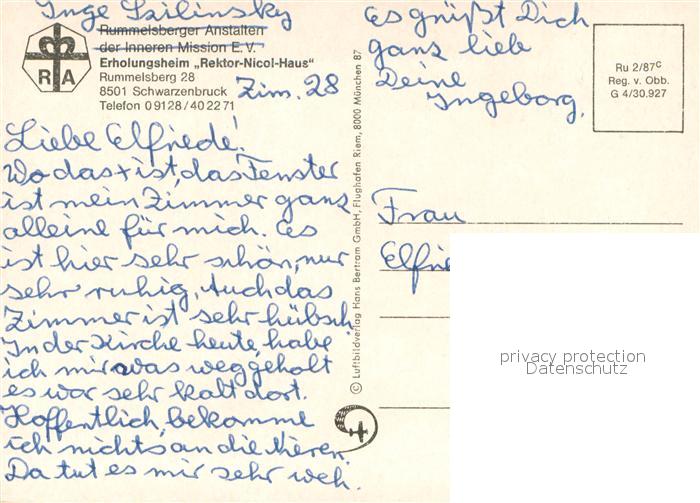 Inge Szilinsky
Rummelsberger Anstalten
der Inneren Mission E.V.
Erholungsheim „Rektor-Nicol-Haus"
Rummelsberg 28
8501 Schwarzenbruck
Telefon 0 91 28 / 40 22 71
R A
Zim. 28
Liebe Elfriede!
Wo das x ist, das Fenster
ist mein Zimmer ganz
alleine für mich. Es
ist hier sehr schön, nur
sehr ruhig. Auch das
Zimmer ist sehr hübsch.
In der Kirche heute, habe
ich mir was weggeholt
es war sehr kalt dort.
Hoffentlich, bekomme
ich nichts an die Nieren.
Da tut es mir sehr weh.
© Luftbildverlag Hans Bertram GmbH, Flughafen Riem, 8000 München 87
Es grüßt Dich
ganz lieb
Deine
Ingeborg.
Ru 2/87c
Reg. v. Obb.
G 4/30.927
Frau
Elfrie
privacy protection
Datenschutz